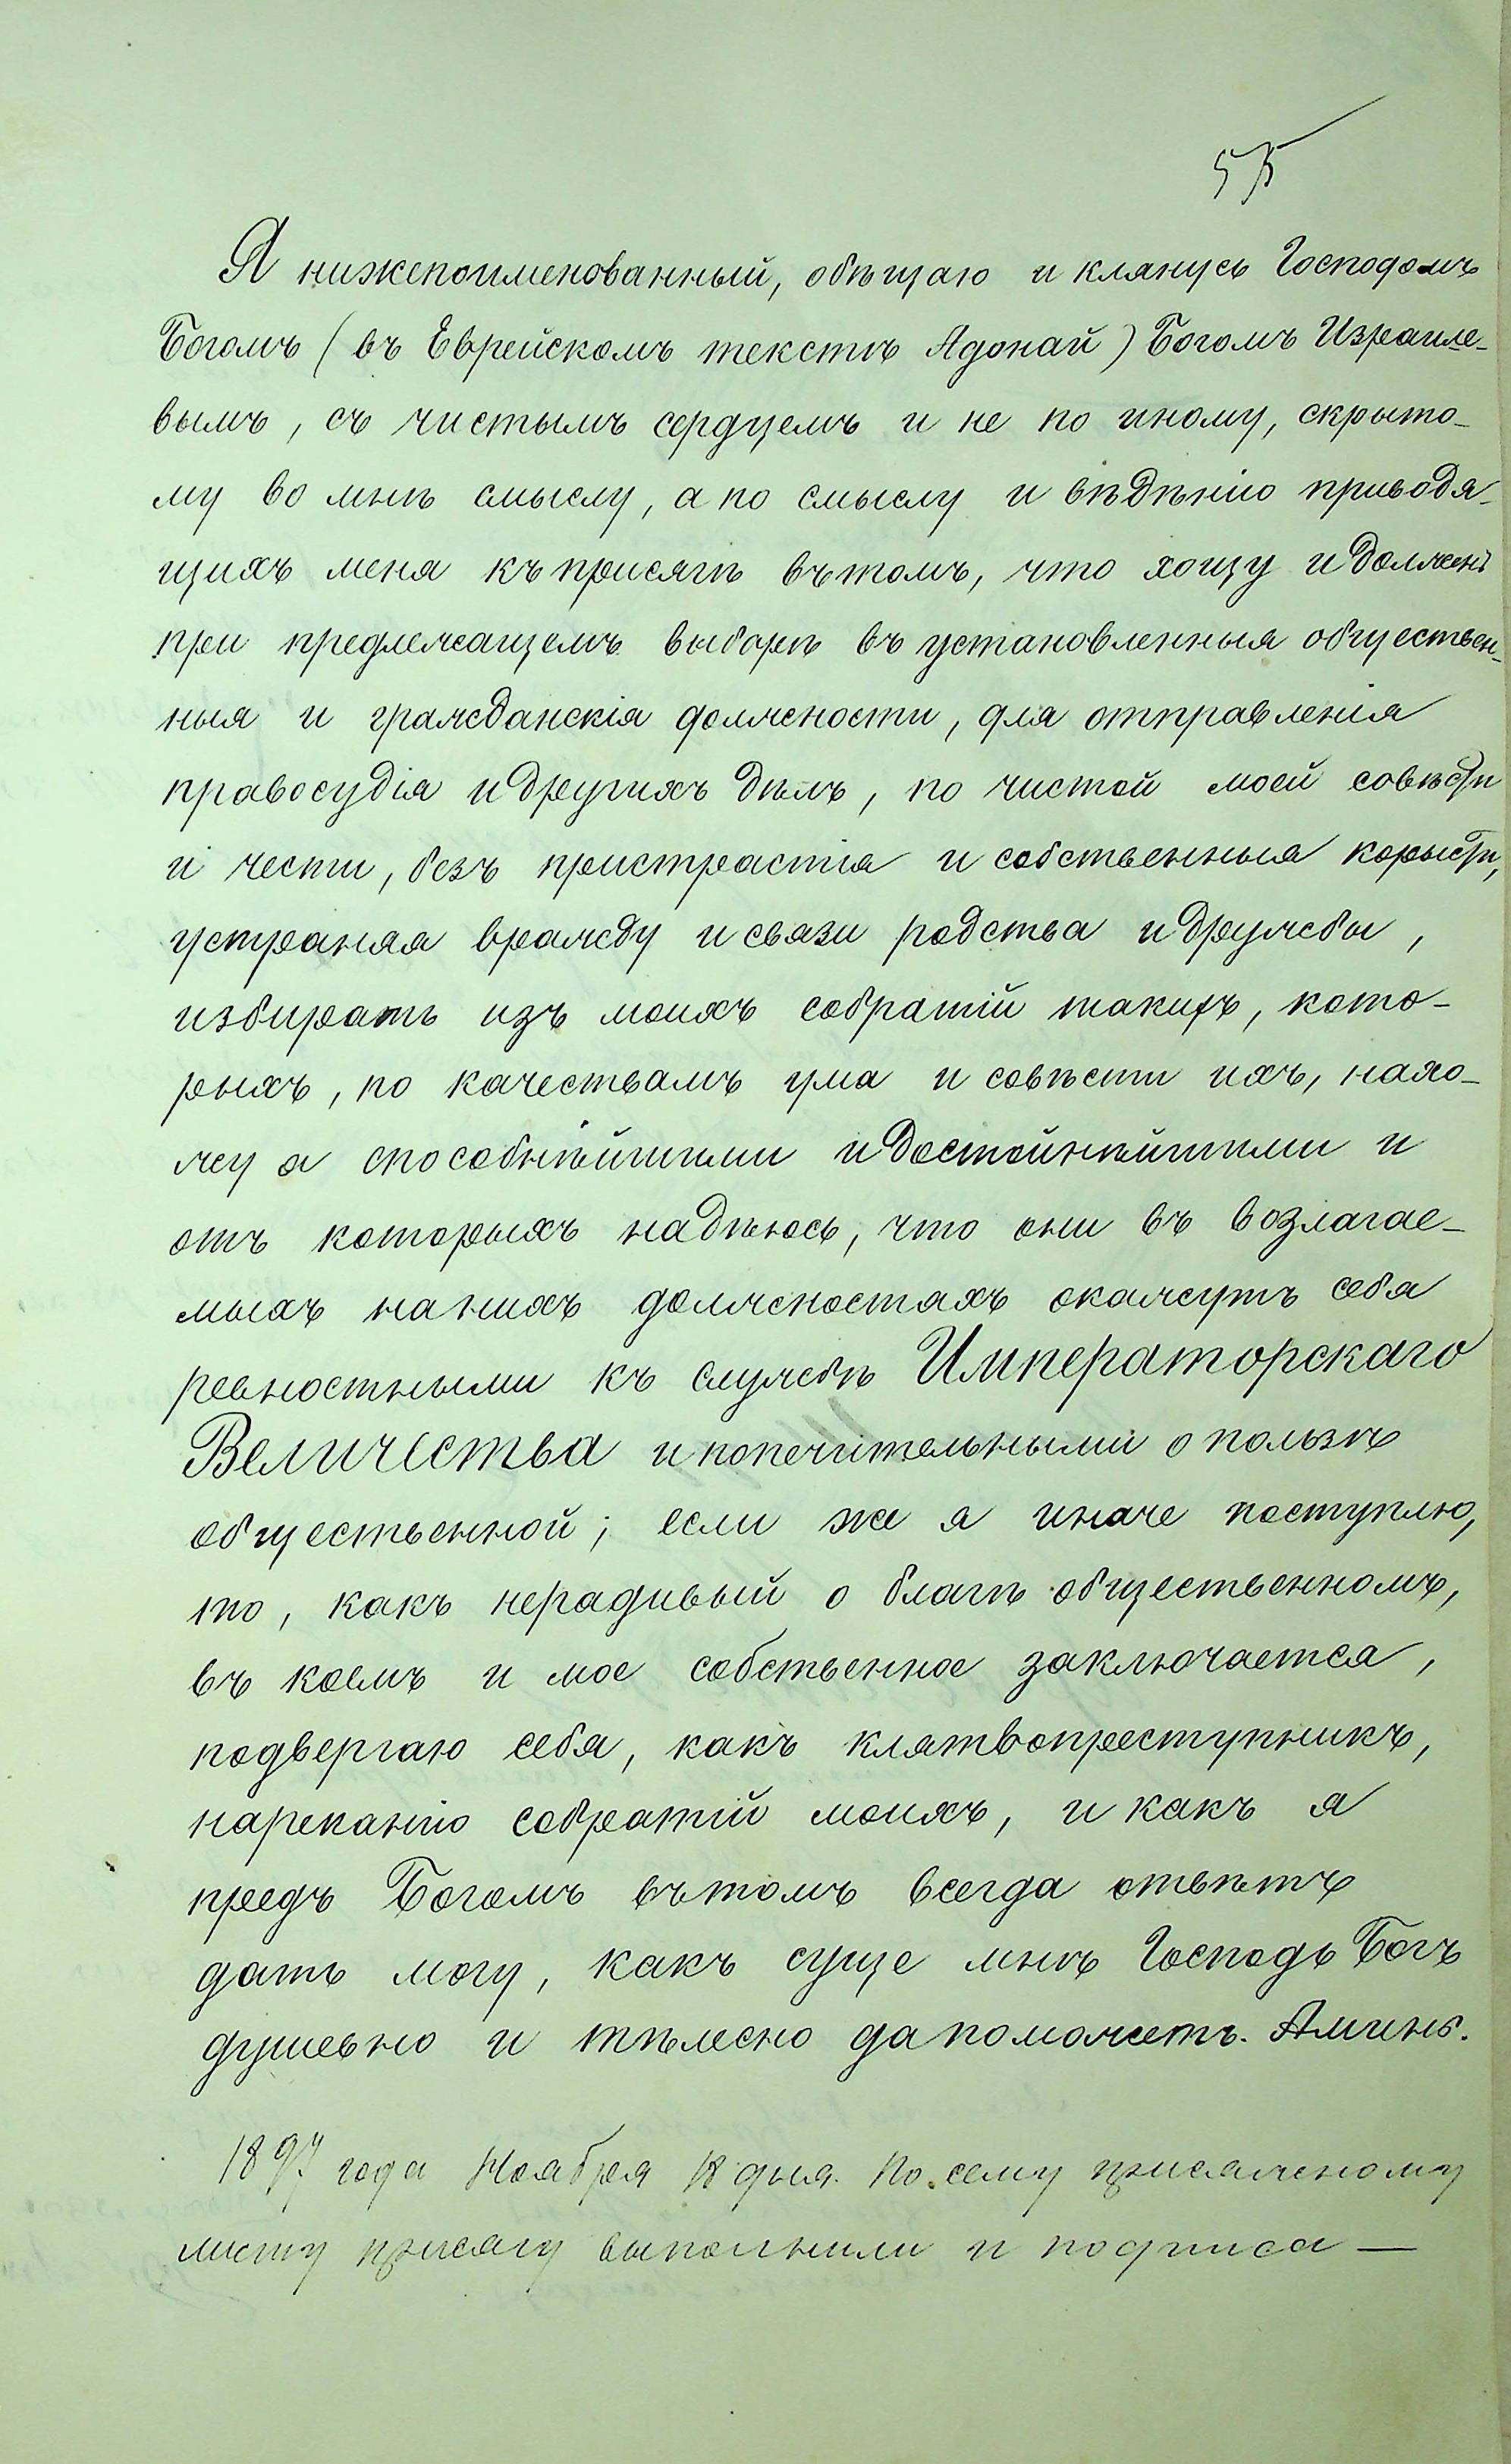 55
Я нижепоименованный, обѣщаю и клянусь Господомъ
Богомъ (въ Еврейскомъ текстѣ Адонай) Богомъ Израиле-
вымъ, съ чистымъ сердцемъ и не по иному, скрыто-
му во мнѣ смыслу, а по смыслу и вѣдѣнію приводя-
щихъ меня къ присягѣ въ томъ, что хощу и долженъ
при предлежащемъ выборѣ въ установленныя обществен-
ныя и гражданскія должности, для отправленія
правосудія и другихъ дѣлъ, по чистой моей совѣсти
и чести, безъ пристрастія и собственныя корысти,
устраняя вражду и связи родства и дружбы,
избирать изъ моихъ собратій такихъ, кото-
рыхъ, по качествамъ ума и совѣсти ихъ, нахо-
жу я способнѣйшими и достойнѣйшими и
отъ которыхъ надѣюсь, что они въ возлагае-
мыхъ на нихъ должностяхъ окажутъ себя
ревностными къ службѣ Императорскаго
Величества и попечительными о пользѣ
общественной; если же я иначе поступлю,
то, какъ нерадивый о благѣ общественномъ,
въ коемъ и мое собственное заключается,
подвергаю себя, какъ клятвопреступникъ,
нареканію собратій моихъ, и какъ я
предъ Богомъ въ томъ всегда отвѣтъ
дать могу, какъ суще мнѣ Господь Богъ
душевно и тѣлесно да поможетъ. Аминь.
1897 года Ноября 18 дня. По сему присяжному
листу присягу выполнили и подписа-